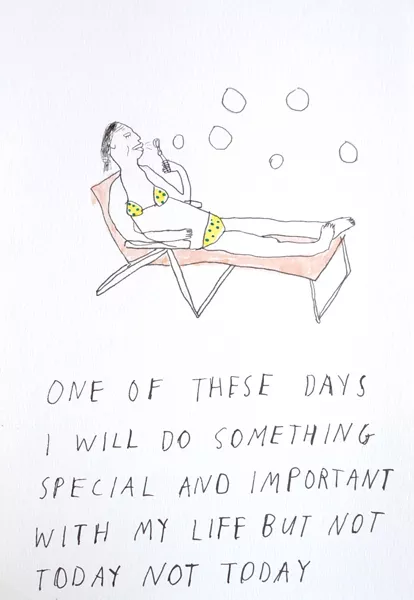 ONE OF THESE DAYS
I WILL DO SOMETHING
SPECIAL AND IMPORTANT
WITH MY LIFE BUT NOT
TODAY NOT TODAY